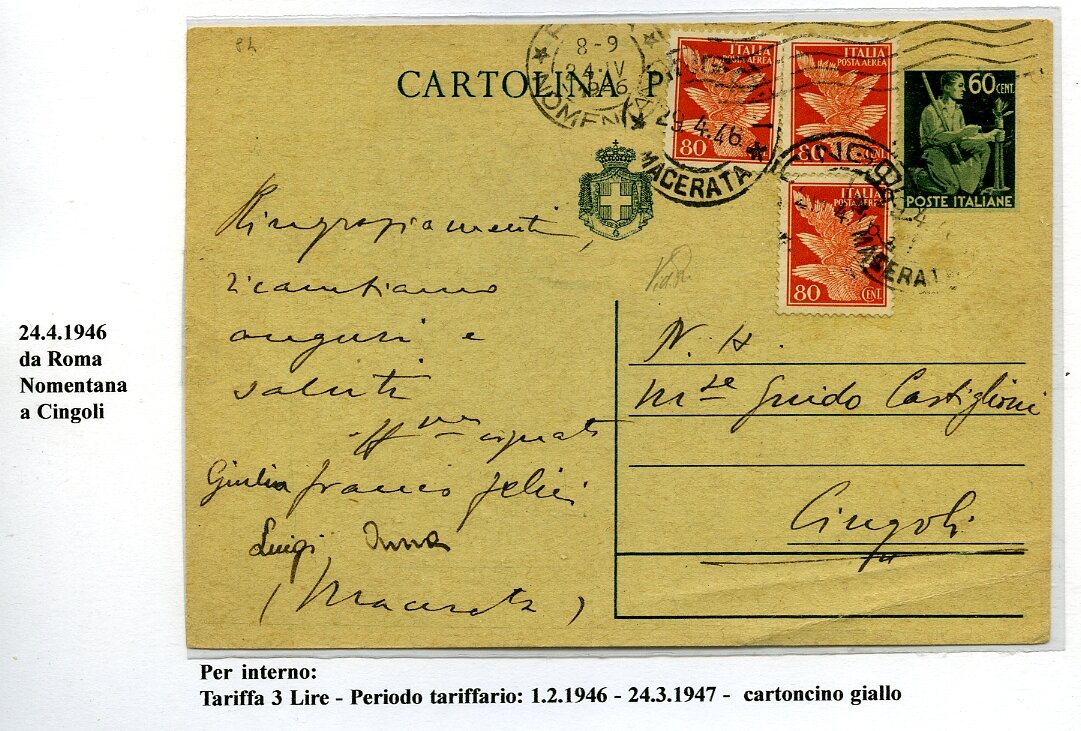 CARTOLINA P
8-9
24.IV
NOMENTA
29.4.46
MACERATA
ITALIA
POSTA AEREA
80
ITALIA
POSTA AEREA
80 CENT.
ITALIA
POSTA AEREA
80 CENT.
MACERATA
60 CENT.
POSTE ITALIANE
Ringraziamenti,
ricambiamo
auguri e
saluti
Giulia Franco Felici
Luigi Anna
(Macerata)
N. H.
Guido Castiglioni
Cingoli
24.4.1946
da Roma
Nomentana
a Cingoli
Per interno:
Tariffa 3 Lire - Periodo tariffario: 1.2.1946 - 24.3.1947 - cartoncino giallo